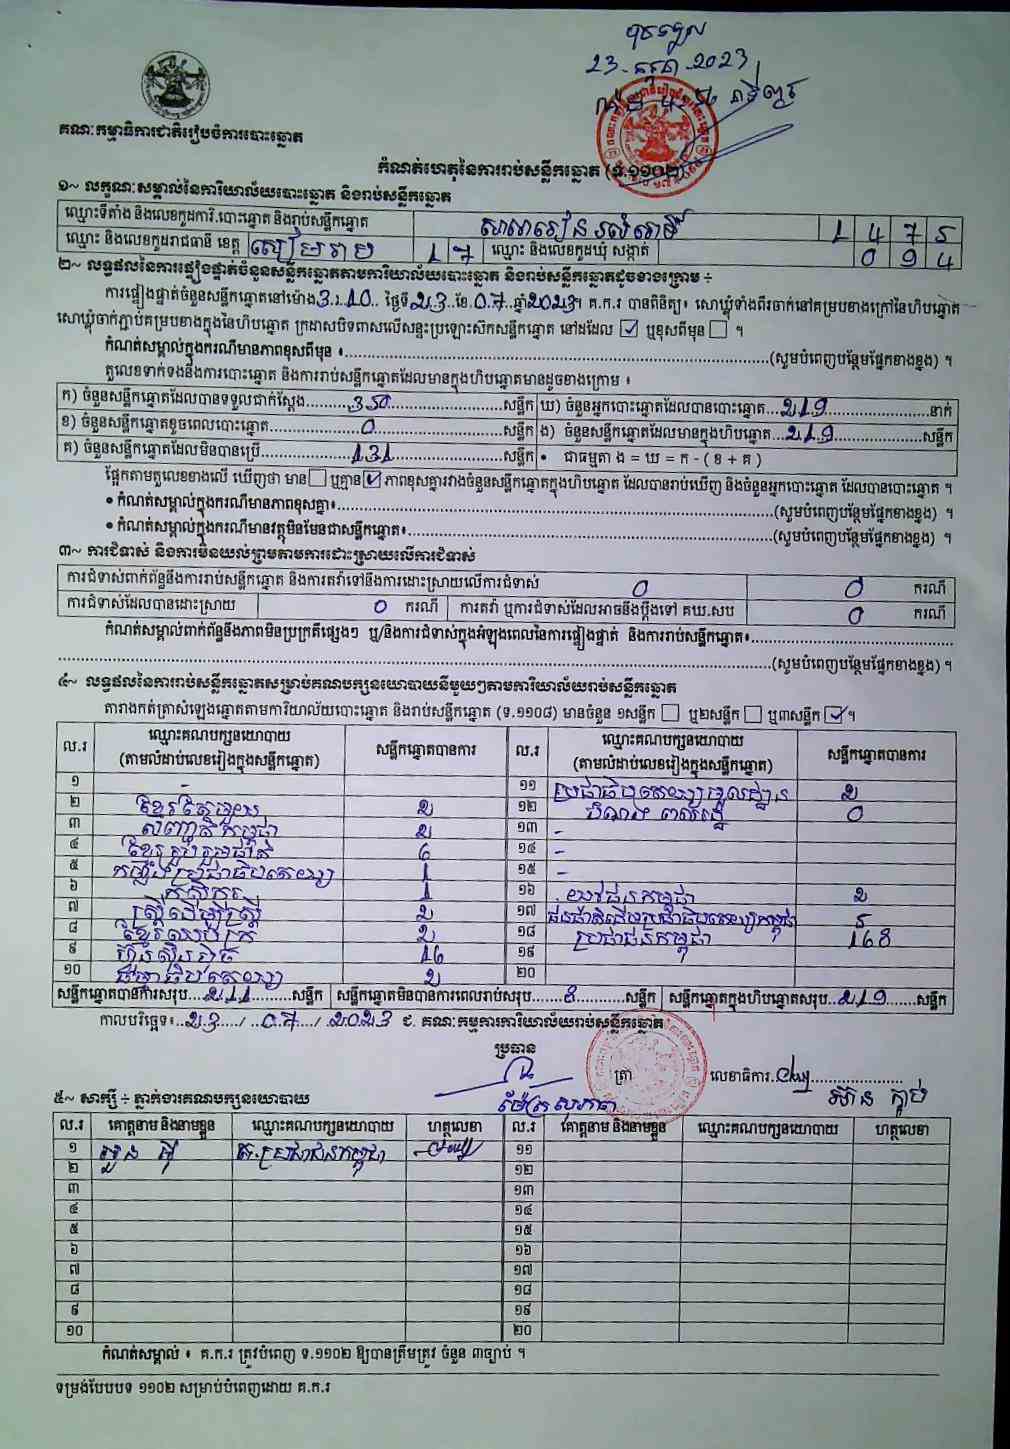 23 2023
គណៈកម្មាធិការជាតិរៀបចំការបោះឆ្នោត
កំណត់ហេតុនៃការរាប់សន្លឹកឆ្នោត (ទ.១១០២)
១~ លក្ខណៈសម្គាល់នៃការិយាល័យបោះឆ្នោត និងរាប់សន្លឹកឆ្នោត
ឈ្មោះទីតាំង និងលេខកូដការិ.បោះឆ្នោត និងរាប់សន្លឹកឆ្នោត សាលារៀន 1 4 7 5
ឈ្មោះ និងលេខកូដរាជធានី ខេត្ត សៀមរាប 1 7 ឈ្មោះ និងលេខកូដឃុំ សង្កាត់ 0 9 4
២~ លទ្ធផលនៃការផ្ទៀងផ្ទាត់ចំនួនសន្លឹកឆ្នោតតាមការិយាល័យបោះឆ្នោត និងរាប់សន្លឹកឆ្នោតដូចខាងក្រោម ÷
ការផ្ទៀងផ្ទាត់ចំនួនសន្លឹកឆ្នោតនៅម៉ោង 3:10 ថ្ងៃទី 23 ខែ 07 ឆ្នាំ 2023។ គ.ក.រ បានពិនិត្យ៖ សោឃ្លុំទាំងពីរចាក់នៅគម្របខាងក្រៅនៃហិបឆ្នោត
សោឃ្លុំចាក់ភ្ជាប់គម្របខាងក្នុងនៃហិបឆ្នោត ក្រដាសបិទពាសលើសន្ទះប្រឡោះសឹកសន្លឹកឆ្នោត នៅដដែល ☑ ឬខុសពីមុន ☐ ។
កំណត់សម្គាល់ក្នុងករណីមានភាពខុសពីមុន ៖ (សូមបំពេញបន្ថែមផ្នែកខាងខ្នង) ។
តួលេខទាក់ទងនឹងការបោះឆ្នោត និងការរាប់សន្លឹកឆ្នោតដែលមានក្នុងហិបឆ្នោតមានដូចខាងក្រោម ៖
ក) ចំនួនសន្លឹកឆ្នោតដែលបានទទួលជាក់ស្តែង 350 សន្លឹក ឃ) ចំនួនអ្នកបោះឆ្នោតដែលបានបោះឆ្នោត 219 នាក់
ខ) ចំនួនសន្លឹកឆ្នោតខូចពេលបោះឆ្នោត 0 សន្លឹក ង) ចំនួនសន្លឹកឆ្នោតដែលមានក្នុងហិបឆ្នោត 219 សន្លឹក
គ) ចំនួនសន្លឹកឆ្នោតដែលមិនបានប្រើ 131 សន្លឹក • ជាធម្មតា ង = ឃ = ក - ( ខ + គ )
ផ្អែកតាមតួលេខខាងលើ ឃើញថា មាន ☐ ឬគ្មាន ☑ ភាពខុសគ្នារវាងចំនួនសន្លឹកឆ្នោតក្នុងហិបឆ្នោត ដែលបានរាប់ឃើញ និងចំនួនអ្នកបោះឆ្នោត ដែលបានបោះឆ្នោត ។
• កំណត់សម្គាល់ក្នុងករណីមានភាពខុសគ្នា៖ (សូមបំពេញបន្ថែមផ្នែកខាងខ្នង) ។
• កំណត់សម្គាល់ក្នុងករណីមានវត្ថុមិនមែនជាសន្លឹកឆ្នោត៖ (សូមបំពេញបន្ថែមផ្នែកខាងខ្នង) ។
៣~ ការជំទាស់ និងការមិនយល់ព្រមតាមការដោះស្រាយលើការជំទាស់
ការជំទាស់ពាក់ព័ន្ធនឹងការរាប់សន្លឹកឆ្នោត និងការតវ៉ាទៅនឹងការដោះស្រាយលើការជំទាស់ 0 0 ករណី
ការជំទាស់ដែលបានដោះស្រាយ 0 ករណី ការតវ៉ា ឬការជំទាស់ដែលអាចនឹងប្តឹងទៅ គឃ.សប 0 ករណី
កំណត់សម្គាល់ពាក់ព័ន្ធនឹងភាពមិនប្រក្រតីផ្សេងៗ ឬ/និងការជំទាស់ក្នុងអំឡុងពេលនៃការផ្ទៀងផ្ទាត់ និងការរាប់សន្លឹកឆ្នោត៖
(សូមបំពេញបន្ថែមផ្នែកខាងខ្នង) ។
៤~ លទ្ធផលនៃការរាប់សន្លឹកឆ្នោតសម្រាប់គណបក្សនយោបាយនីមួយៗតាមការិយាល័យរាប់សន្លឹកឆ្នោត
តារាងកត់ត្រាសំឡេងឆ្នោតតាមការិយាល័យបោះឆ្នោត និងរាប់សន្លឹកឆ្នោត (ទ.១១០៨) មានចំនួន ១សន្លឹក ☐ ឬ២សន្លឹក ☐ ឬ៣សន្លឹក ☑។
ល.រ ឈ្មោះគណបក្សនយោបាយ (តាមលំដាប់លេខរៀងក្នុងសន្លឹកឆ្នោត) សន្លឹកឆ្នោតបានការ ល.រ ឈ្មោះគណបក្សនយោបាយ (តាមលំដាប់លេខរៀងក្នុងសន្លឹកឆ្នោត) សន្លឹកឆ្នោតបានការ
១ - ១១ ប្រជាធិបតេយ្យមូលដ្ឋាន 2
២ ខ្មែរតែមួយ 2 ១២ 0
៣ សញ្ជាតិកម្ពុជា 2 ១៣ -
៤ ខ្មែររួបរួមជាតិ 6 ១៤ -
៥ ឃ្មុំប្រជាធិបតេយ្យ 1 ១៥ -
៦ កសិករ 1 ១៦ យុវជនកម្ពុជា 2
៧ ស្ត្រីដើម្បីស្ត្រី 2 ១៧ ជនជាតិដើមប្រជាធិបតេយ្យកម្ពុជា 5
៨ ខ្មែរឈប់ក្រ 2 ១៨ ប្រជាជនកម្ពុជា 168
៩ ហ៊្វុនស៊ិនប៉ិច 16 ១៩
១០ ធម្មាធិបតេយ្យ 2 ២០
សន្លឹកឆ្នោតបានការសរុប 211 សន្លឹក សន្លឹកឆ្នោតមិនបានការពេលរាប់សរុប 8 សន្លឹក សន្លឹកឆ្នោតក្នុងហិបឆ្នោតសរុប 219 សន្លឹក
កាលបរិច្ឆេទ៖ 23 / 07 / 2023 ជ. គណៈកម្មការការិយាល័យរាប់សន្លឹកឆ្នោត
ប្រធាន
ត្រា លេខាធិការ
៥~ សាក្សី ÷ ភ្នាក់ងារគណបក្សនយោបាយ
ល.រ គោត្តនាម និងនាមខ្លួន ឈ្មោះគណបក្សនយោបាយ ហត្ថលេខា ល.រ គោត្តនាម និងនាមខ្លួន ឈ្មោះគណបក្សនយោបាយ ហត្ថលេខា
១ គ.ប្រជាជនកម្ពុជា ១១
២ ១២
៣ ១៣
៤ ១៤
៥ ១៥
៦ ១៦
៧ ១៧
៨ ១៨
៩ ១៩
១០ ២០
កំណត់សម្គាល់ ៖ គ.ក.រ ត្រូវបំពេញ ទ.១១០២ ឱ្យបានត្រឹមត្រូវ ចំនួន ៣ច្បាប់ ។
ទម្រង់បែបបទ ១១០២ សម្រាប់បំពេញដោយ គ.ក.រ